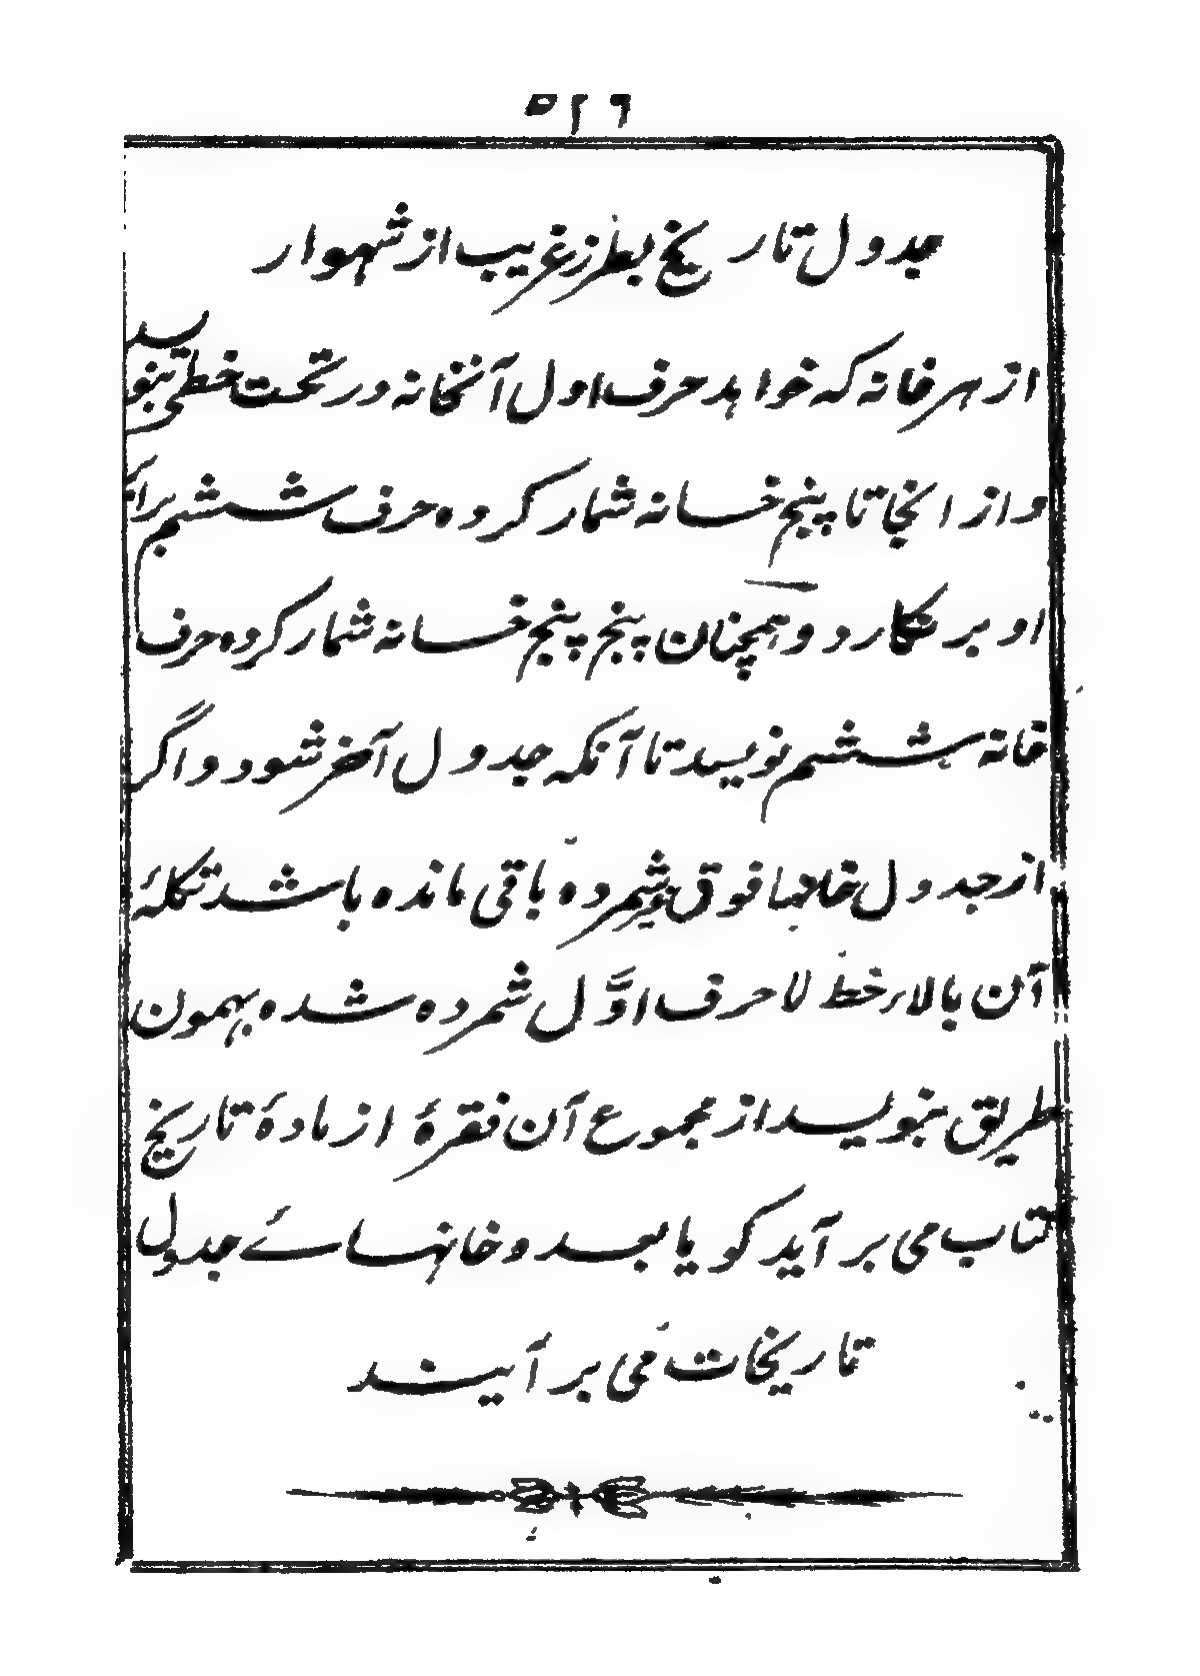 ۵۲۶
جدول تاریخ بطرز غریب از شہوار
از ہر خانہ کہ خواہد حرف اول آنخانہ در تحت خطی بنویسد
و از انجا تا پنج خانہ شمار کردہ حرف ششم برای
او بر نگارد و ہمچنان پنج پنج خانہ شمار کردہ حرف
خانہ ششم نویسد تا آنکہ جدول آخر شود و اگر
از جدول خانہا فوق شمردہ باقی ماندہ باشد تکملۂ
آن بالاء خط لا حرف اوّل شمردہ شدہ بہمون
طریق بنویسد از مجموع آن فقرۂ از مادۂ تاریخ
کتاب می بر آید گویا بعد و خانہائے جدول
تاریخات می بر آیند